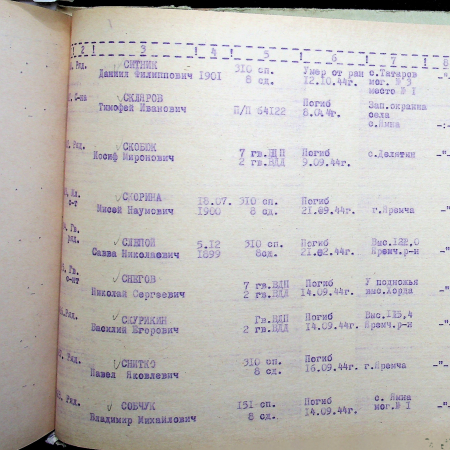 ! 2 ! 3 ! 4 ! 5 ! 6 ! 7 ! 8
Ряд. СИТНИК 310 сп. Умер от ран с.Татаров
Даниил Филиппович 1901 8 сд. 12.10.44г. мог.№3
место №1
с-на СКЛЯРОВ Погиб Зап.окраина
Тимофей Иванович П/П 64122 8.04г. села
с.Ямна -"-
Ряд. СКОБЮК 7 гв.ВДП Погиб с.Делятин -"-
Иосиф Миронович 2 гв.ВДД 9.09.44г.
Мл. СКОРИНА 18.07. 310 сп. Погиб
с-т Мисей Наумович 1900 8 сд. 21.09.44г. г.Яремча -"-
Гв. СЛЕПОЙ 5.12 310 сп. Погиб Выс.122,0
ряд. Савва Николаевич 1899 8сд. 21.02.44г. Яремч.р-н -"-
Гв. СНЕГОВ 7 гв.ВДП Погиб У подножья
Николай Сергеевич 2 гв.ВДД 14.09.44г. выс.Хорди -"-
Ряд. СКУРИКИН Гв.ВДП Погиб Выс.133,4
Василий Егорович 2 гв.ВДД 14.09.44г. Яремч.р-н -"-
Ряд. СНИТКО 310 сп. Погиб
Павел Яковлевич 8 сд. 16.09.44г. г.Яремча -"-
Ряд. СОБЧУК 151 сп. Погиб с. Ямна
Владимир Михайлович 8 сд. 14.09.44г. мог.№1 -"-